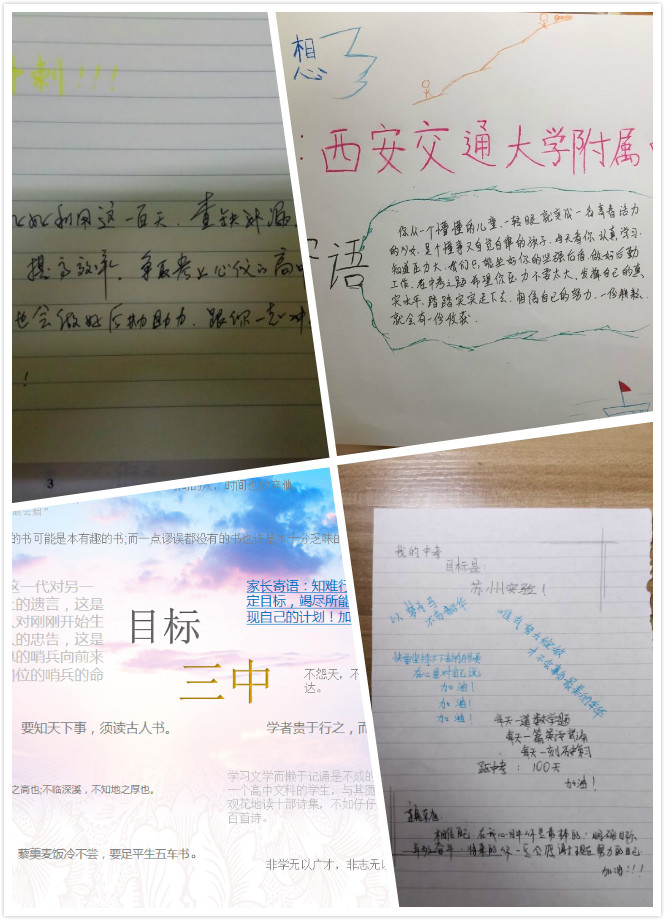 冲刺!!!
好好利用这一百天，查缺补漏，
提高效率，争取考上心仪的高中
也会做好后勤助力，跟你一起冲
!
3
想
：西安交通大学附属
语
你从一个懵懂的儿童，一转眼就变成一名青春活力
的少女，是个懂事又自觉自律的孩子，每天看你认真学习，
知道压力大，我们只能坐好你的坚强后盾，做好后勤
工作，在中考之路希望你压力不要太大，发挥自己的真
实水平，踏踏实实走下去，相信自己的努力，一份耕耘，
就会有一份收获.
时间也
的书可能是本有趣的书;而一点谬误都没有的书
这一代对另一
的遗言，这是
人对刚刚开始生
人的忠告，这是
的哨兵向前来
岗位的哨兵的命
家长寄语：知难行
定目标，竭尽所能
现自己的计划！加
目标
三中
不怨天，不
达。
要知天下事，须读古人书。
学者贵于行之，而
之高也;不临深溪，不知地之厚也。
学习文学而懒于记诵是不成的
一个高中文科的学生，与其囫
观花地读十部诗集，不如仔仔
百首诗。
藜羹麦饭冷不尝，要足平生五车书。
非学无以广才，非志无以
我的中考
目标是：
苏州实验！
以梦为马
不负韶华
唯有努力绽放
才不会辜负最美的年华
在心里对自己说：
加油！
加油！
加油！
每天一道数学题
每天一篇英语
每天一刻不
距中考：100天
加油！
相信自己，在我心目中你是最棒的！明确目标，
将来的你一定会感谢现在努力的自己
加油!!!